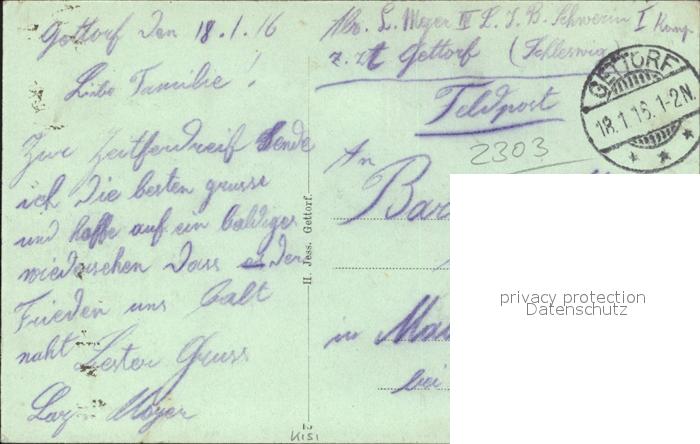 Gettorf den 18.1.16
Liebe Familie!
Zum Zeitvertreib sende
ich die besten grusse
und hoffe auf ein baldiges
wiedersehen dass es den
Frieden uns balt
naht Bester Gruss
Meyer
Abs. L. Meyer II E. I. B. Schwerin I Komp.
z. Zt Gettorf (Schleswig
Feldpost
GETTORF
18.1.16.1-2N.
2303
An
Bar
in Mai
bei
H. Jess. Gettorf.
privacy protection
Datenschutz
KISI